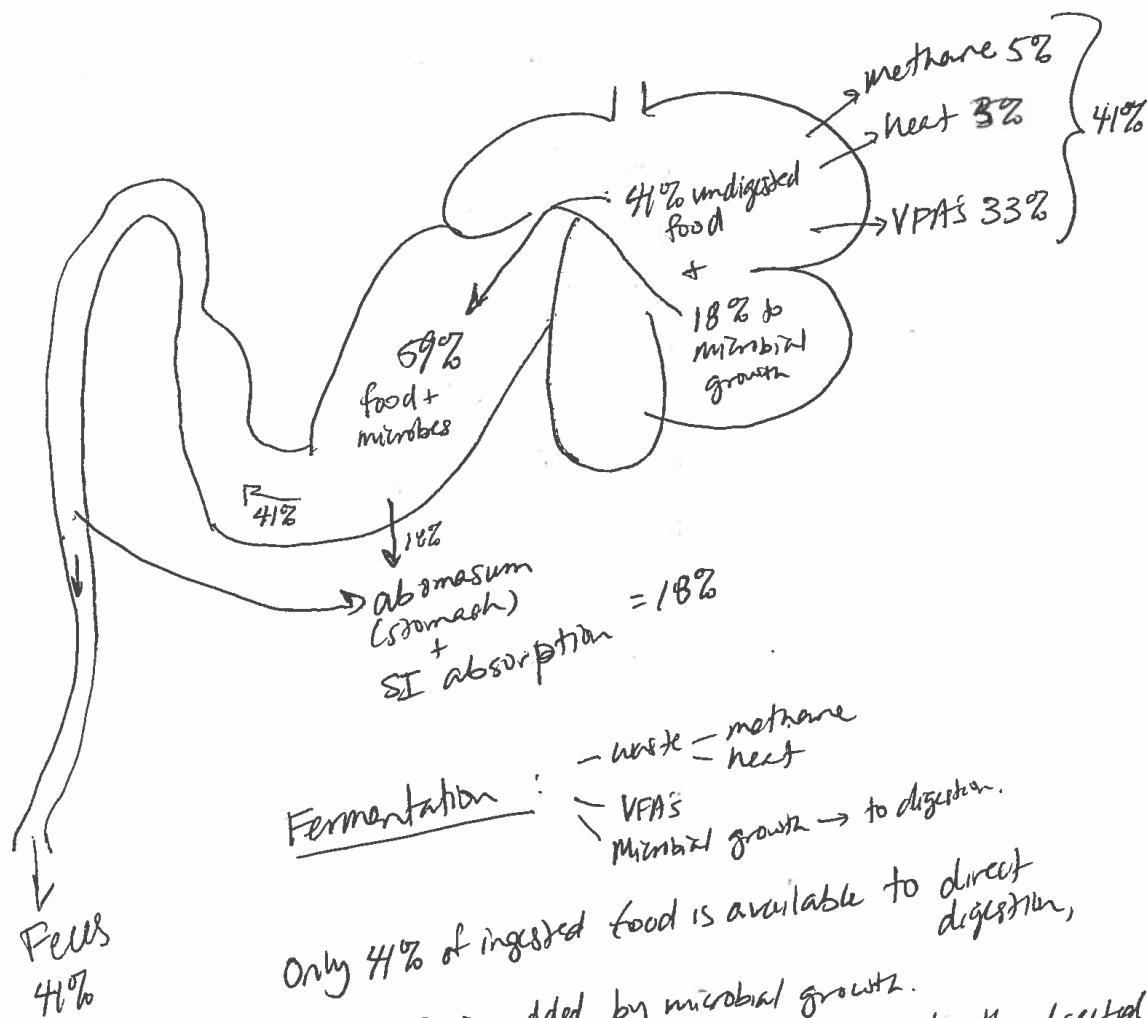 methane 5%
heat 3%
VFA's 33%
41%
41% undigested
food
+
18% to
microbial
growth
59%
food +
microbes
41%
18%
abomasum
(stomach)
+
SI absorption
= 18%
Feces
41%
Fermentation :
- waste - methane
- heat
- VFA's
Microbial growth → to digestion.
Only 41% of ingested food is available to direct
digestion,
added by microbial growth.